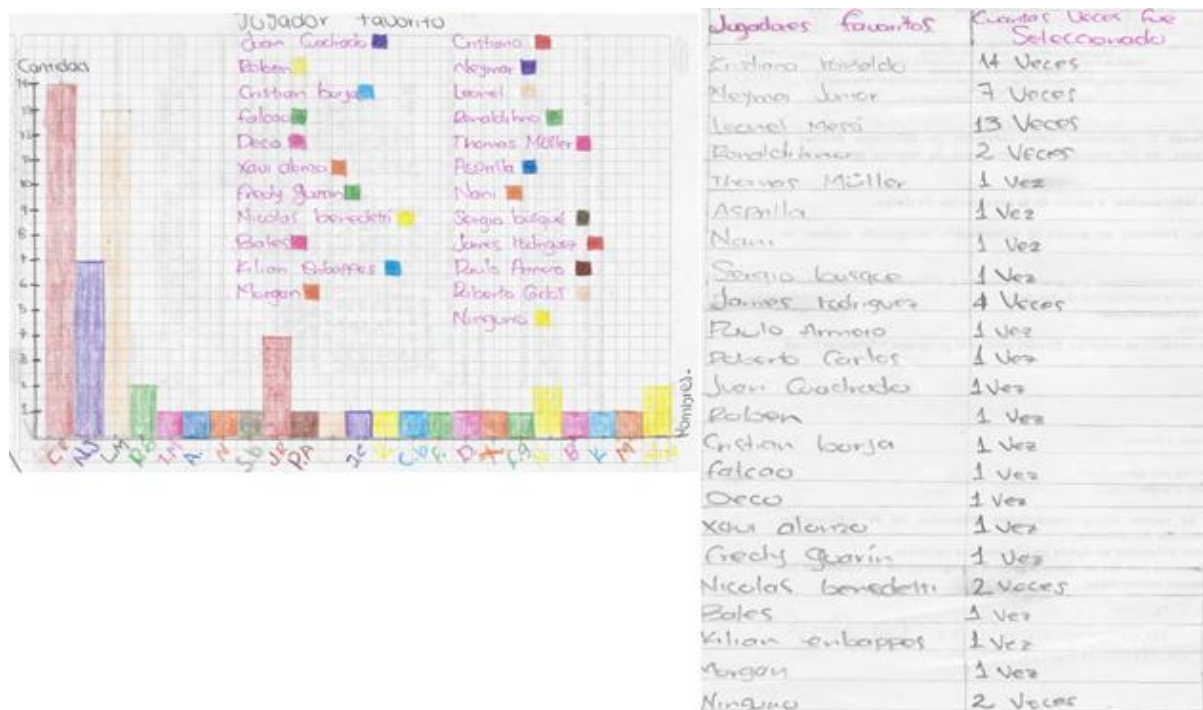 Jugador favorito
Cantidad
Juan Cuadrado
Roben
Cristian borja
falcao
Deco
Xavi alonso
fredy guarin
Nicolas benedetti
Bales
Kilian enbappes
Morgan
Cristiano
Neymar
Leonel
Ronaldihno
Thomas Müller
Asprilla
Nani
Sergio busque
James rodriguez
Paulo Armero
Roberto Carlos
Ninguno
14
7
6
C.R N.J L.M
J.R P.A
J.C
C.b F. D. X F.g
B K M
Nombres.
Jugadores favoritos Cuantas Veces fue Seleccionado
Cristiano ronaldo 14 Veces
Neymar Junior 7 Veces
Leonel Messi 13 Veces
Ronaldihno 2 Veces
Thomas Müller 1 Vez
Asprilla 1 Vez
Nani 1 Vez
Sergio busque 1 Vez
James rodriguez 4 Veces
Paulo Armero 1 Vez
Roberto Carlos 1 Vez
Juan Cuadrado 1 Vez
Roben 1 Vez
Cristian borja 1 Vez
falcao 1 Vez
Deco 1 Vez
Xavi alonzo 1 Vez
fredy guarín 1 Vez
Nicolas benedetti 2 Veces
Bales 1 Vez
Kilian enbappes 1 Vez
Morgan 1 Vez
Ninguno 2 Veces